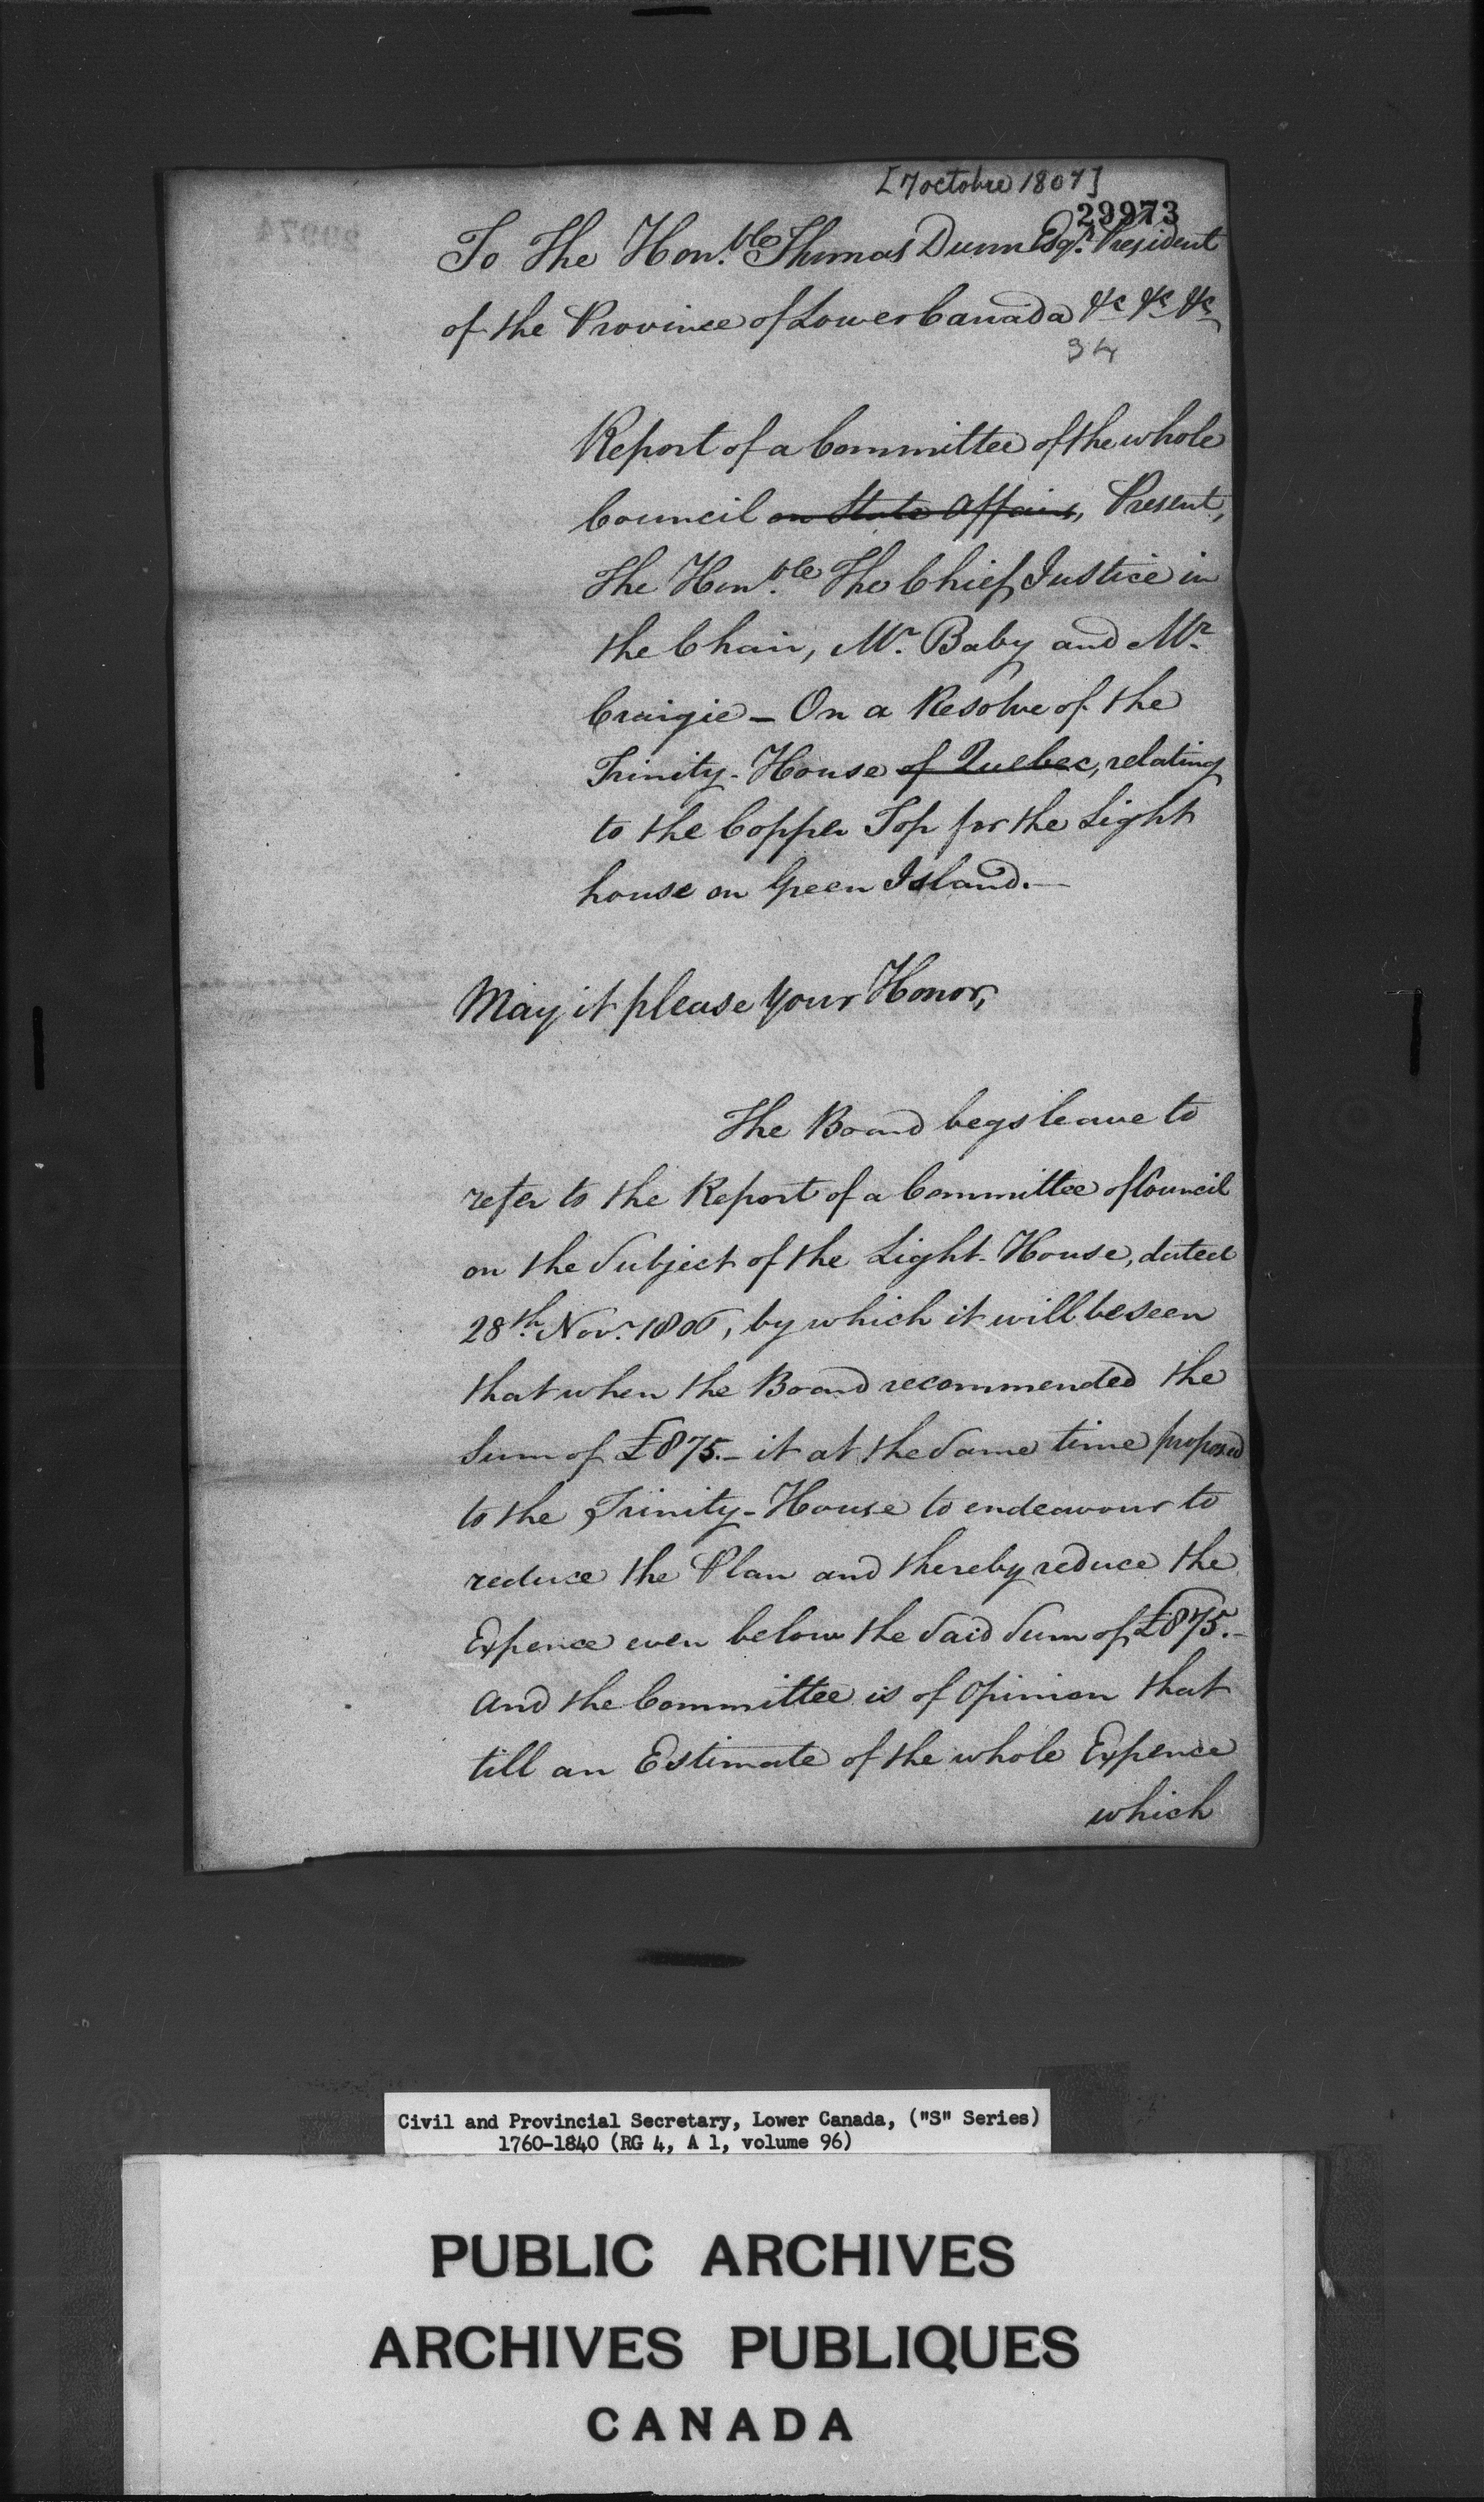 [7 octobre 1807]
29973
To The Hon.ble Thomas Dunn Esqr. President
of the Province of Lower Canada &c &c &c
34
Report of a Committee of the whole
Council on State Affairs, Present,
The Hon.ble The Chief Justice in
the Chair, Mr. Baby and Mr.
Craigie - On a Resolve of the
Trinity-House of Quebec, relating
to the Copper Top for the Light
house on Green Island.—
May it please Your Honor,
The Board begs leave to
refer to the Report of a Committee of Council
on the Subject of the Light-House, dated
28th Novr. 1806, by which it will be seen
that when the Board recommended the
Sum of £875.- it at the Same time proposed
to the Trinity-House to endeavour to
reduce the Plan and thereby reduce the
Expence even below the Said Sum of £875.-
And the Committee is of Opinion that
till an Estimate of the whole Expence
which
Civil and Provincial Secretary, Lower Canada, ("S" Series)
1760-1840 (RG 4, A 1, volume 96)
PUBLIC ARCHIVES
ARCHIVES PUBLIQUES
CANADA